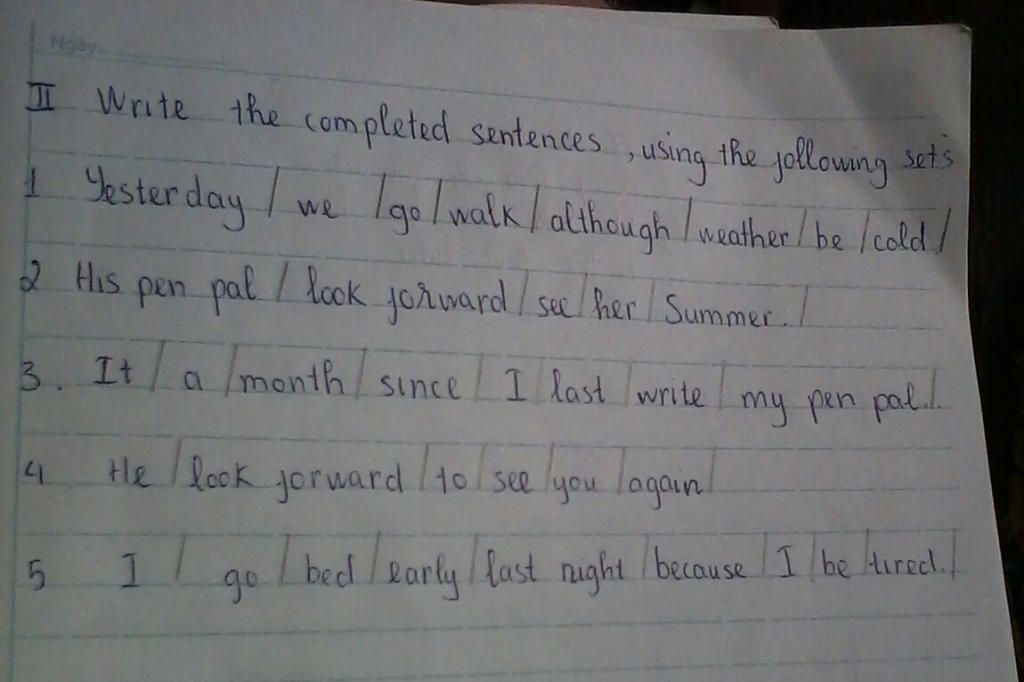 Ngày
II Write the completed sentences, using the following sets
1 Yesterday / we / go / walk / although / weather / be / cold /
2 His pen pal / look forward / see / her / Summer. /
3. It / a / month / since / I / last / write / my pen pal. /.
4 He / look forward / to / see / you / again /
5 I / go / bed / early / last night / because / I / be / tired. /